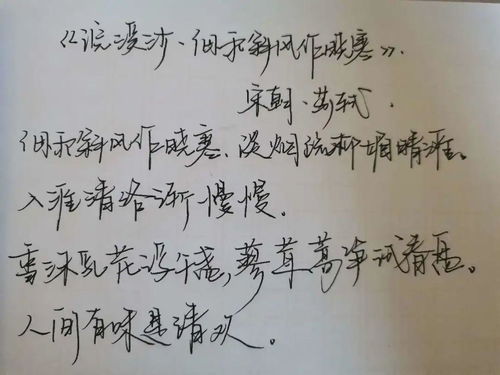 《浣溪沙·细雨斜风作晓寒》.
宋朝·苏轼.
细雨斜风作晓寒、淡烟疏柳媚晴滩。
入淮清洛渐慢慢。
雪沫乳花浮午盏,蓼茸蒿笋试春盘。
人间有味是清欢。